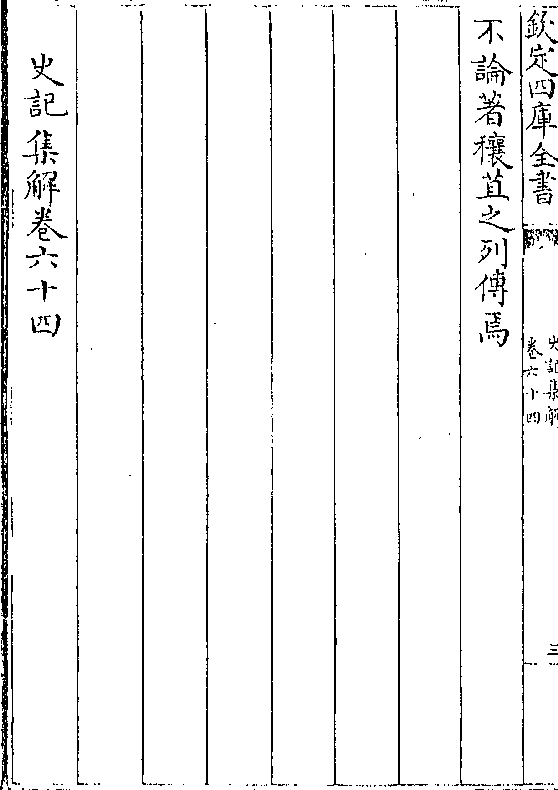 欽定四庫全書
史記集解
卷六十四
三
不論著穰苴之列傳焉
史記集解卷六十四